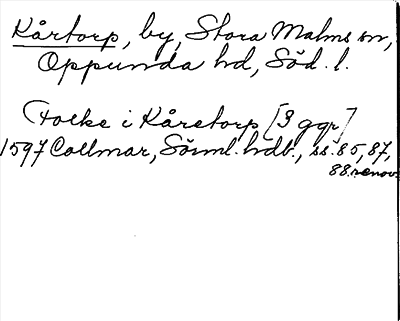 Kårtorp, by, Stora Malms sn,
Oppunda hd, Söd. l.
Folke i Kåretorp [3 ggr]
1597 Collmar, Sörml. hdb., ss. 85, 87,
88. renov.